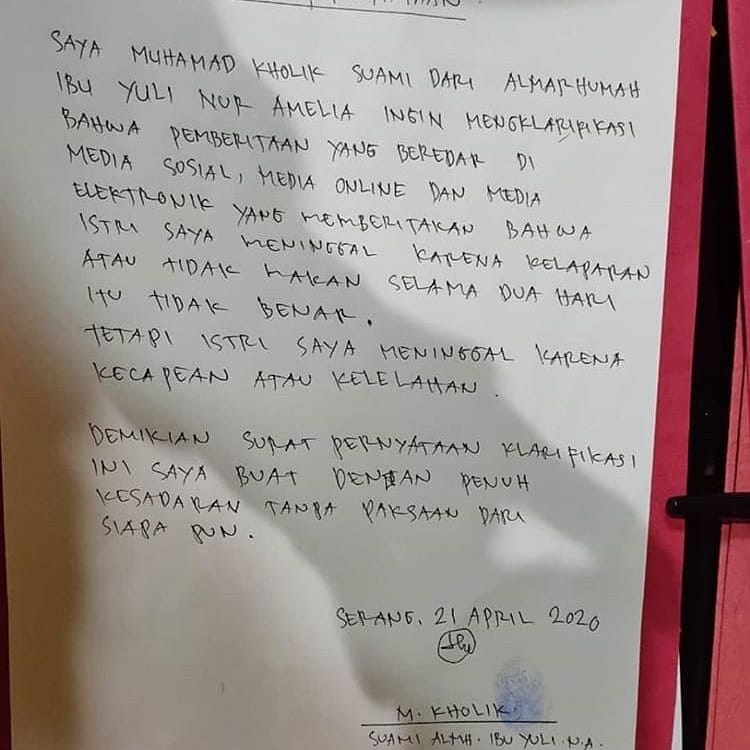 SAYA MUHAMAD KHOLIK SUAMI DARI ALMARHUMAH
IBU YULI NUR AMELIA INGIN MENGKLARIFIKASI
BAHWA PEMBERITAAN YANG BEREDAR DI
MEDIA SOSIAL, MEDIA ONLINE DAN MEDIA
ELEKTRONIK YANG MEMBERITAKAN BAHWA
ISTRI SAYA MENINGGAL KARENA KELAPARAN
ATAU TIDAK MAKAN SELAMA DUA HARI
ITU TIDAK BENAR.
TETAPI ISTRI SAYA MENINGGAL KARENA
KECAPEAN ATAU KELELAHAN.
DEMIKIAN SURAT PERNYATAAN KLARIFIKASI
INI SAYA BUAT DENGAN PENUH
KESADARAN TANPA PAKSAAN DARI
SIAPA PUN.
SERANG, 21 APRIL 2020
M. KHOLIK.
SUAMI ALMH. IBU YULI N.A.